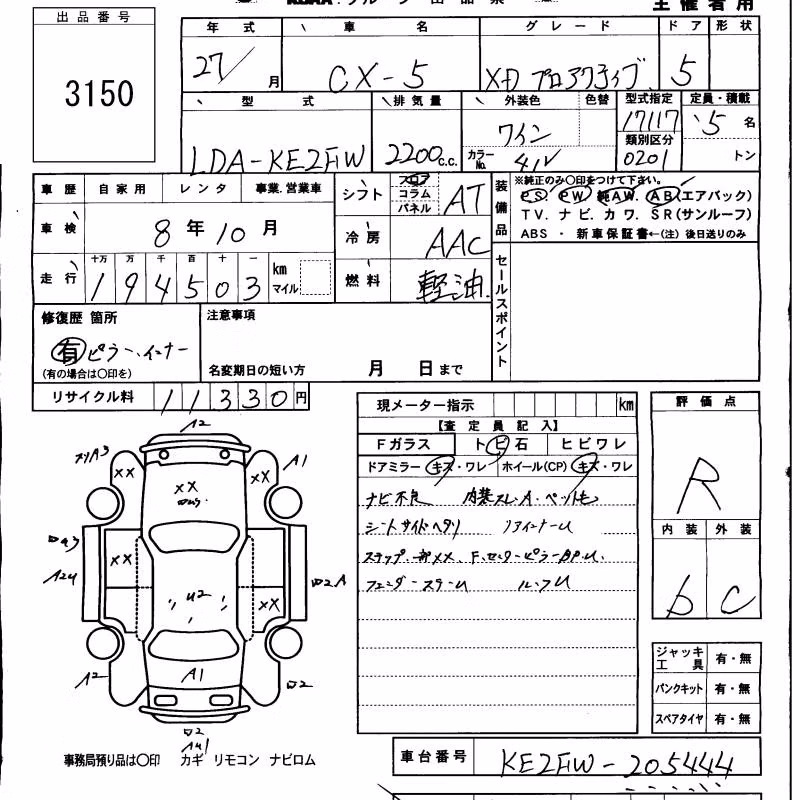 主催者用
出品番号
3150
年式 車名 グレード ドア 形状
27/ 月 CX-5 XD プロアクティブ 5
型式 排気量 外装色 色替 型式指定 定員・積載
LDA-KE2FW 2200 c.c. ワイン 17117 5 名
カラーNo. 41V 類別区分 0201 トン
車歴 自家用 レンタ 事業.営業車
シフト フロア コラム パネル AT
装備品 ※純正のみ○印をつけて下さい。
PS PW 純AW. AB(エアバック)
TV. ナビ. カワ. SR(サンルーフ)
ABS ・ 新車保証書←(注) 後日送りのみ
車検 8年10月
冷房 AAC
走行 十万 万 千 百 十 一 km マイル
194503
燃料 軽油
セールスポイント
修復歴 箇所 注意事項
有 ピラー、インナー
(有の場合は○印を) 名変期日の短い方 月 日まで
リサイクル料 11330円
現メーター指示 km
評価点
R
【査定員記入】
Fガラス トビ石 ヒビワレ
ドアミラー キズ・ワレ ホイール(CP) キズ・ワレ
ナビ不良 内装スレ.A.ペットモ
シートサイドヘタリ リヤインナーU
ステップ一部XX、F.センターピラーBP.U.
フェンダーステーU ルーフU
内装 外装
b C
A2
A3 XX XX A1
XX
XX
A2U XX
U2
A1
A2
ジャッキ工具 有・無
パンクキット 有・無
スペアタイヤ 有・無
事務局預り品は○印 カギ リモコン ナビロム
車台番号 KE2FW-205444